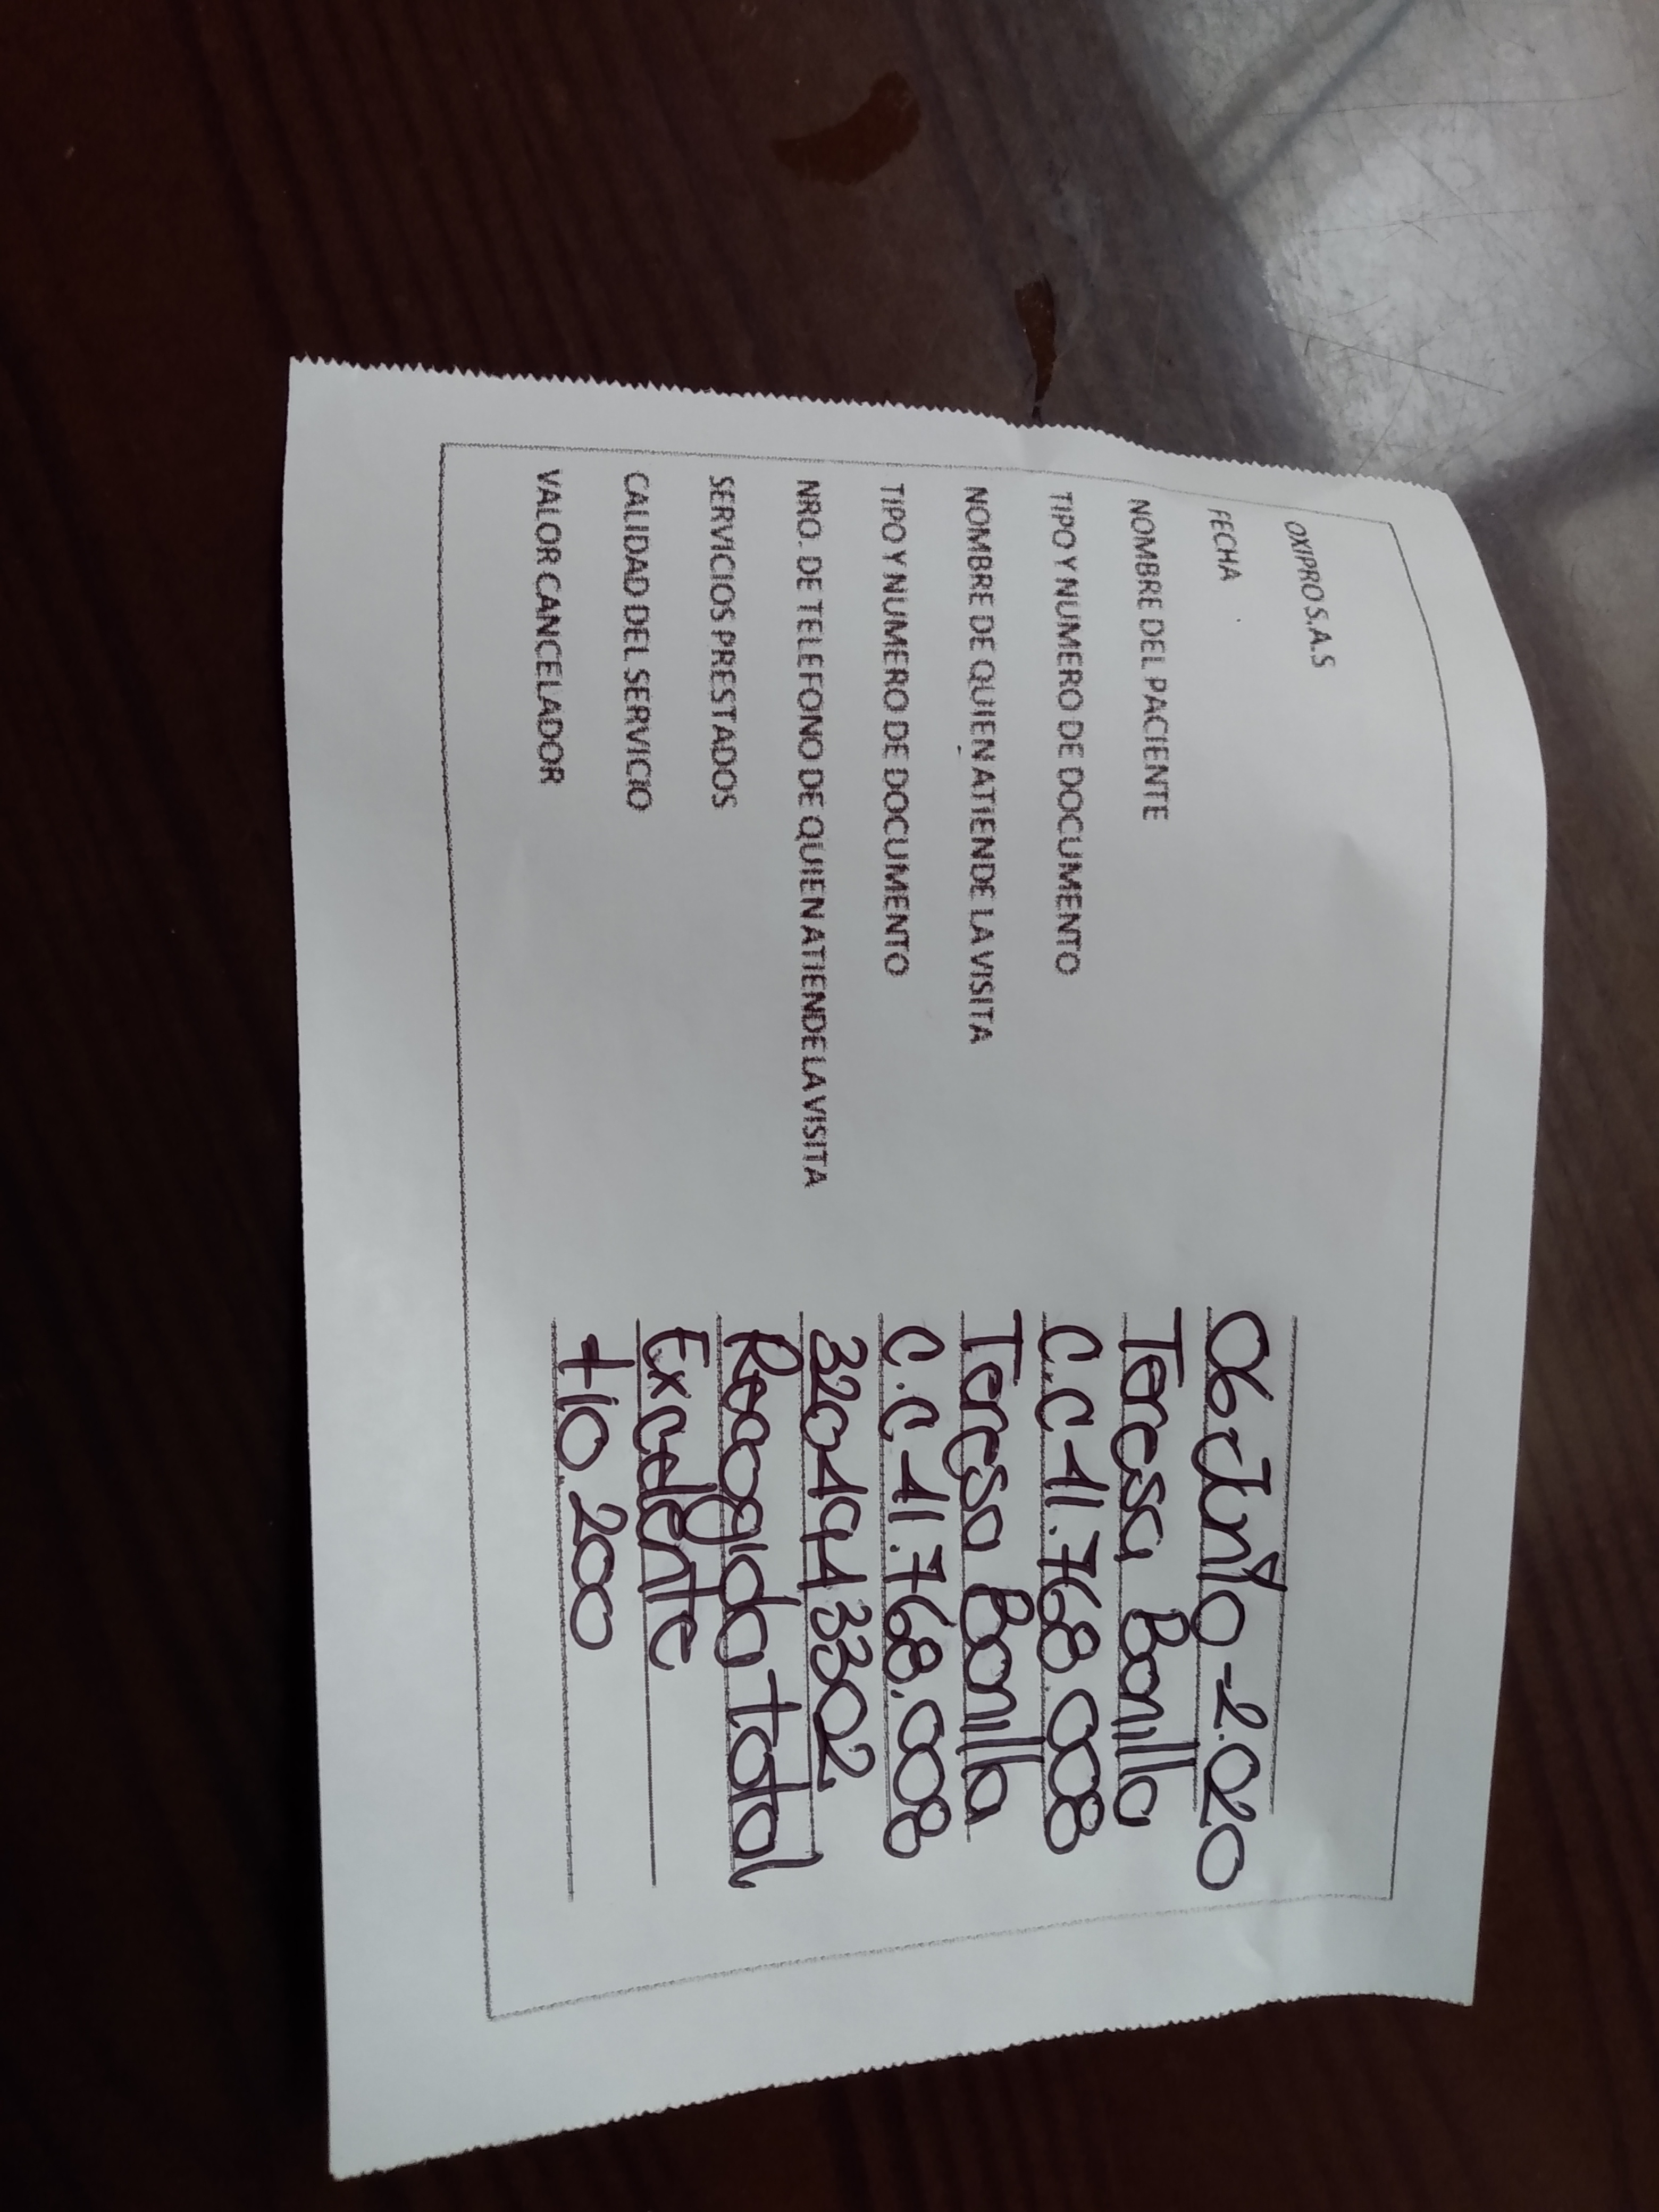 OXIPRO S.A.S
FECHA 06 Junio - 2.020
NOMBRE DEL PACIENTE Teresa Bonilla
TIPO Y NUMERO DE DOCUMENTO C.C 41.768.008
NOMBRE DE QUIEN ATIENDE LA VISITA Teresa Bonilla
TIPO Y NUMERO DE DOCUMENTO C.C. 41.768.008
NRO. DE TELEFONO DE QUIEN ATIENDE LA VISITA
SERVICIOS PRESTADOS Recogida total
CALIDAD DEL SERVICIO Excelente
VALOR CANCELADOR